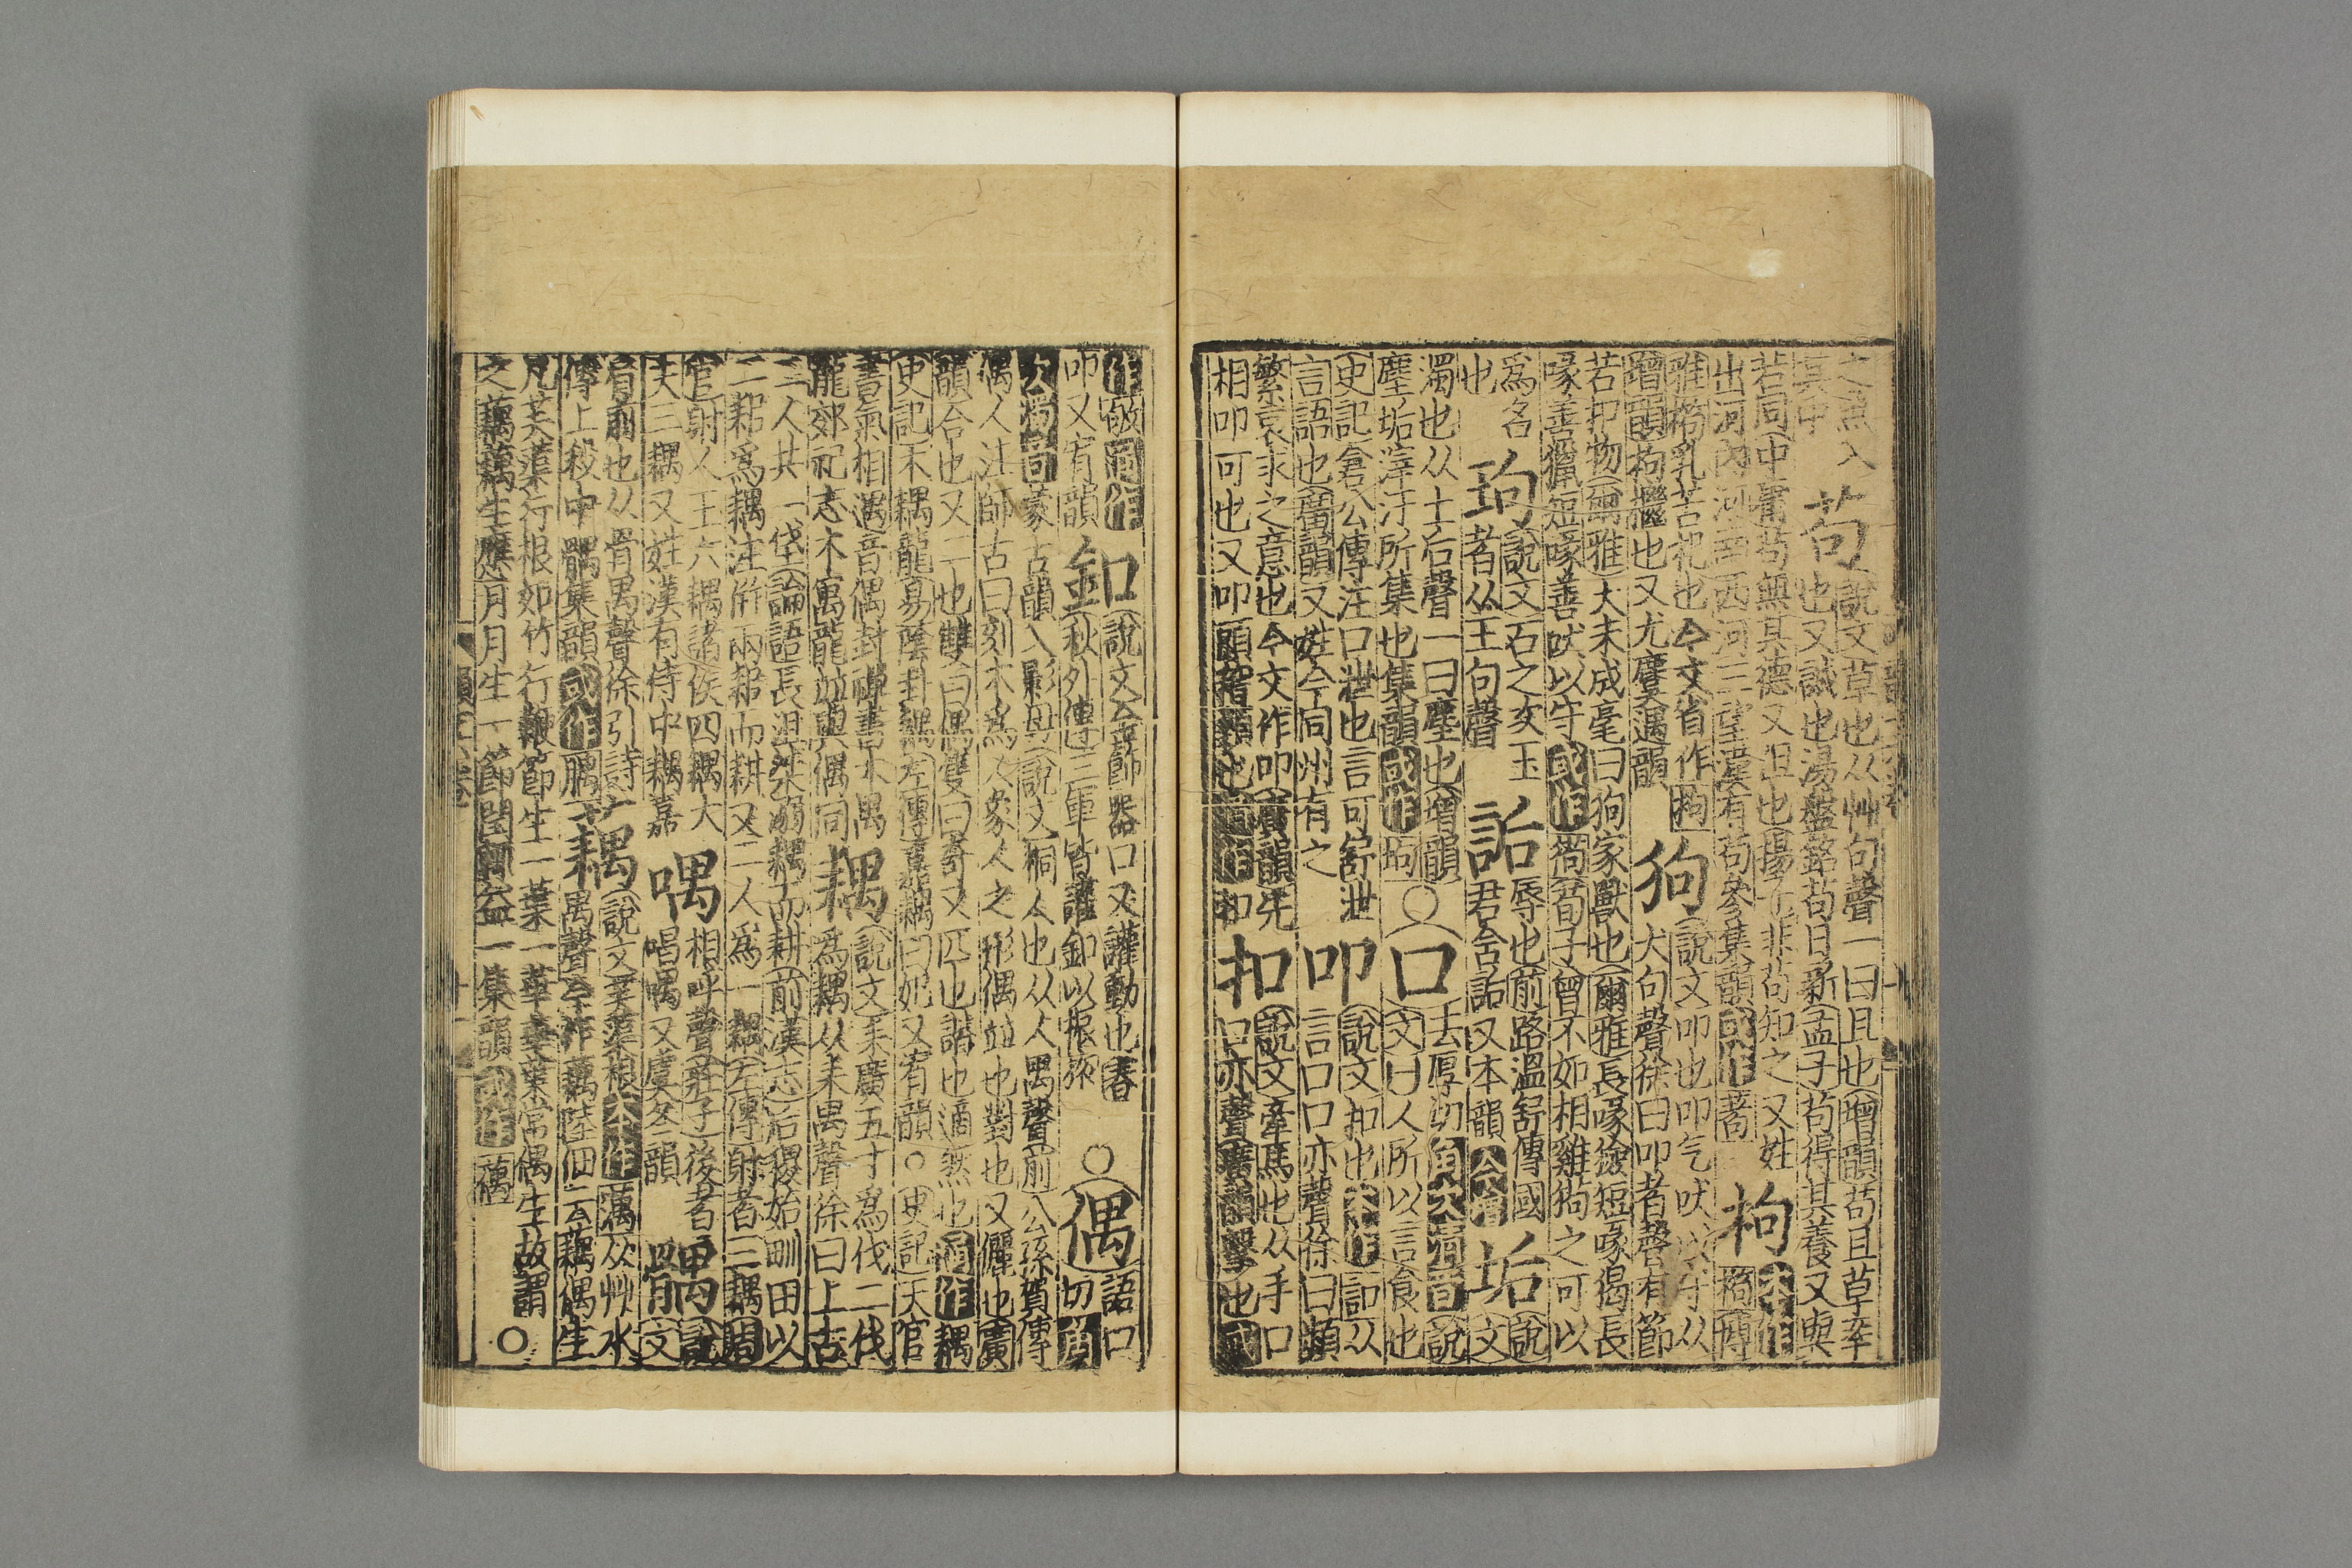 之魚入其中苟說文草也从艸句聲一曰且也增韻苟且草率也又誠也湯盤銘苟日新孟子苟得其養又與
若同中庸苟無其德又但也揚子非苟知之又姓出河內河南西河三望漢有苟參集韻或作枸本作
雅乳苦杞也今文省作枸增韻枸檵也又尤麌遇韻狗說文叩也叩气吠以守从犬句聲徐曰叩者聲有節
若扣物爾雅犬未成毫曰狗家獸也爾雅長喙獫短喙猲長喙善獵短喙善吠以守或作荀子曾不如相雞狗之可以
為名也玽說文石之次玉者从王句聲詬辱也前路溫舒傳國君含詬又本韻垢說文
濁也从土后聲一曰塵也增韻塵垢滓汙所集也集韻或作坸○口去厚切角次清音說文口人所以言食也
史記倉公傳注口泄也言可舒泄言語也廣韻又姓今同州有之叩說文扣也本作訆从言口口亦聲徐曰頻
繁哀求之意也今文作叩廣韻先相叩可也又叩頭稽顙也通作扣扣說文牽馬也从手口口亦聲廣韻擊也或
作敂通作叩又宥韻釦說文金飾器口又讙動也春秋外傳三軍皆譁釦以振旅○偶語口切角
次濁音蒙古韻入影母說文桐人也从人禺聲前公孫賀傳偶人注師古曰刻木為人象人之形偶並也對也又儷也廣
韻合也又二也雙曰偶隻曰奇又匹也諧也適然也通作耦史記木耦龍易陰卦耦左傳嘉耦曰妃又宥韻○史記天官
書氣相遇音偶封禪書木禺龍郊祀志木寓龍並與偶同耦說文耒廣五寸為伐二伐為耦从耒禺聲徐曰上古
三人共一伐論語長沮桀溺耦而耕前漢志后稷始甽田以二耜為耦注併兩耜而耕又二人為一耦左傳射者三耦周
官射人王六耦諸侯四耦大夫三耦又姓漢有侍中耦嘉喁相呼聲莊子後者唱喁又虞冬韻髃說文
肩前也从骨禺聲徐引詩傳上殺中髃集韻或作腢藕說文芙蕖根本作蕅从艸水禺聲今作藕陸佃云藕偶生
凡芙蕖行根如竹行鞭節生一葉一華華葉常偶生故謂之藕藕生應月月生一節閏輒益一集韻或作○